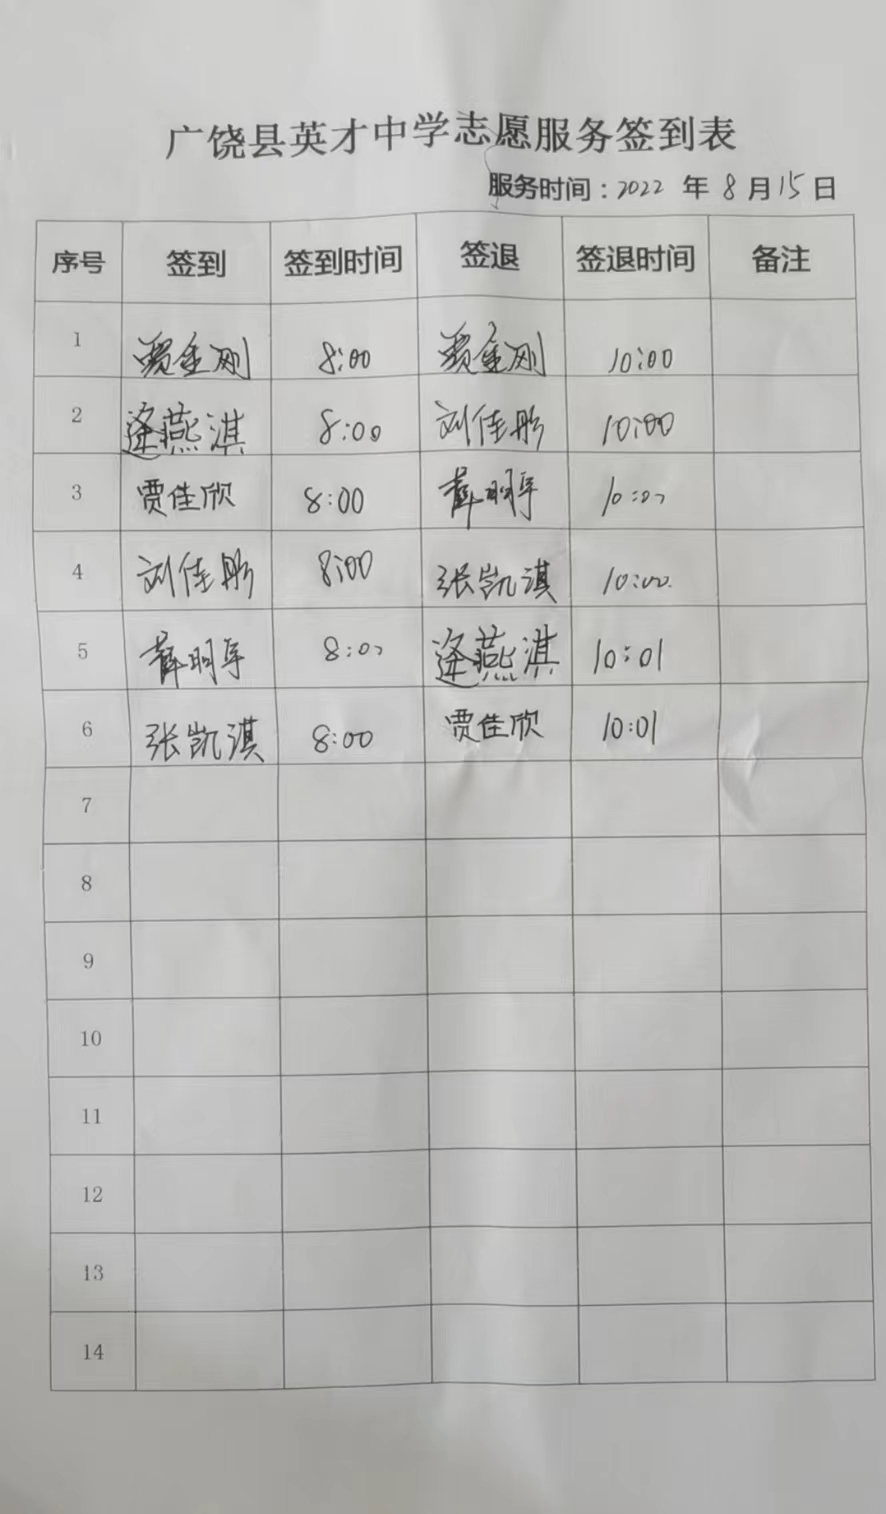 广饶县英才中学志愿服务签到表
服务时间：2022 年 8 月 15 日
序号 签到 签到时间 签退 签退时间 备注
1 贾金刚 8:00 贾金刚 10:00
2 逄燕淇 8:00 刘佳彤 10:00
3 贾佳欣 8:00 薛明军 10:00
4 刘佳彤 8:00 张凯淇 10:00
5 薛明军 8:00 逄燕淇 10:01
6 张凯淇 8:00 贾佳欣 10:01
7
8
9
10
11
12
13
14